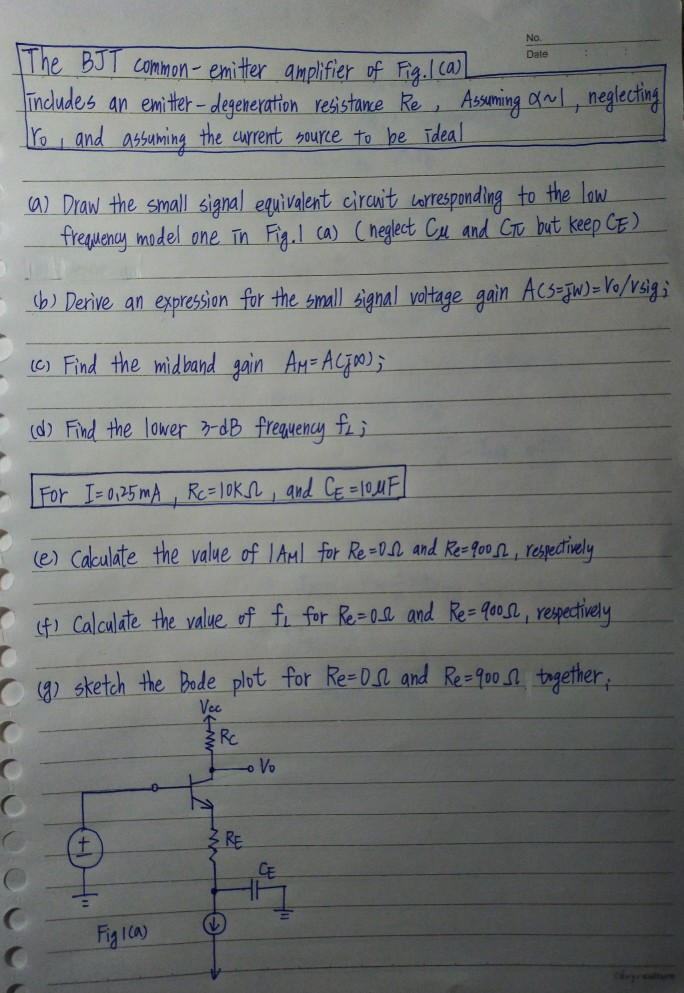 No.
Date
The BJT common-emitter amplifier of Fig.1(a)
includes an emitter-degeneration resistance Re, Assuming α~1, neglecting
ro, and assuming the current source to be ideal
(a) Draw the small signal equivalent circuit corresponding to the low
frequency model one in Fig.1 (a) (neglect Cμ and Cπ but keep CE)
(b) Derive an expression for the small signal voltage gain A(s=jw)=Vo/Vsig;
(c) Find the midband gain AM=A(j∞);
(d) Find the lower 3-dB frequency fL;
For I=0.25mA, Rc=10KΩ, and CE=10μF
(e) Calculate the value of |AM| for Re=0Ω and Re=900Ω, respectively
(f) Calculate the value of fL for Re=0Ω and Re=900Ω, respectively
(g) sketch the Bode plot for Re=0Ω and Re=900Ω together;
Vcc
Rc
Vo
+
RE
CE
Fig1(a)